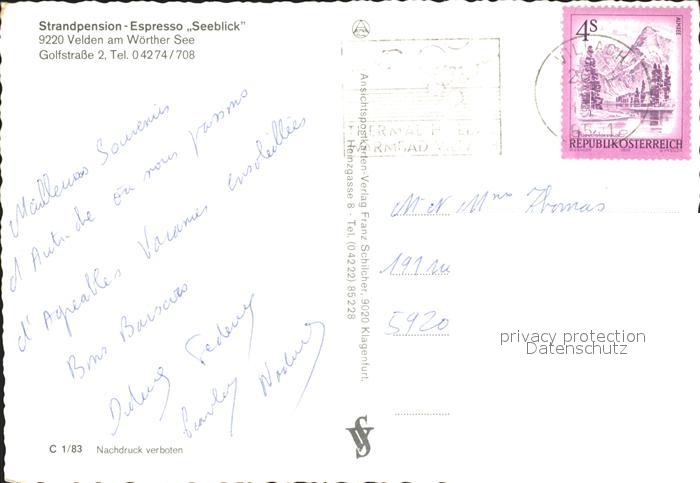 Strandpension - Espresso „Seeblick"
9220 Velden am Wörther See
Golfstraße 2, Tel. 0 42 74 / 708
Meilleurs Souvenirs
d'Autriche où nous passons
d'Agréables Vacances ensoleillées
Bons Baisers
C 1/83 Nachdruck verboten
Ansichtspostkarten-Verlag Franz Schilcher, 9020 Klagenfurt,
Heinzgasse 8 - Tel. (0 42 22) 85 2 28
THERMAL
WARMBAD
VILLACH
4S
ALMSEE
REPUBLIK ÖSTERREICH
Mr et Mme Thomas
191
5920
privacy protection
Datenschutz